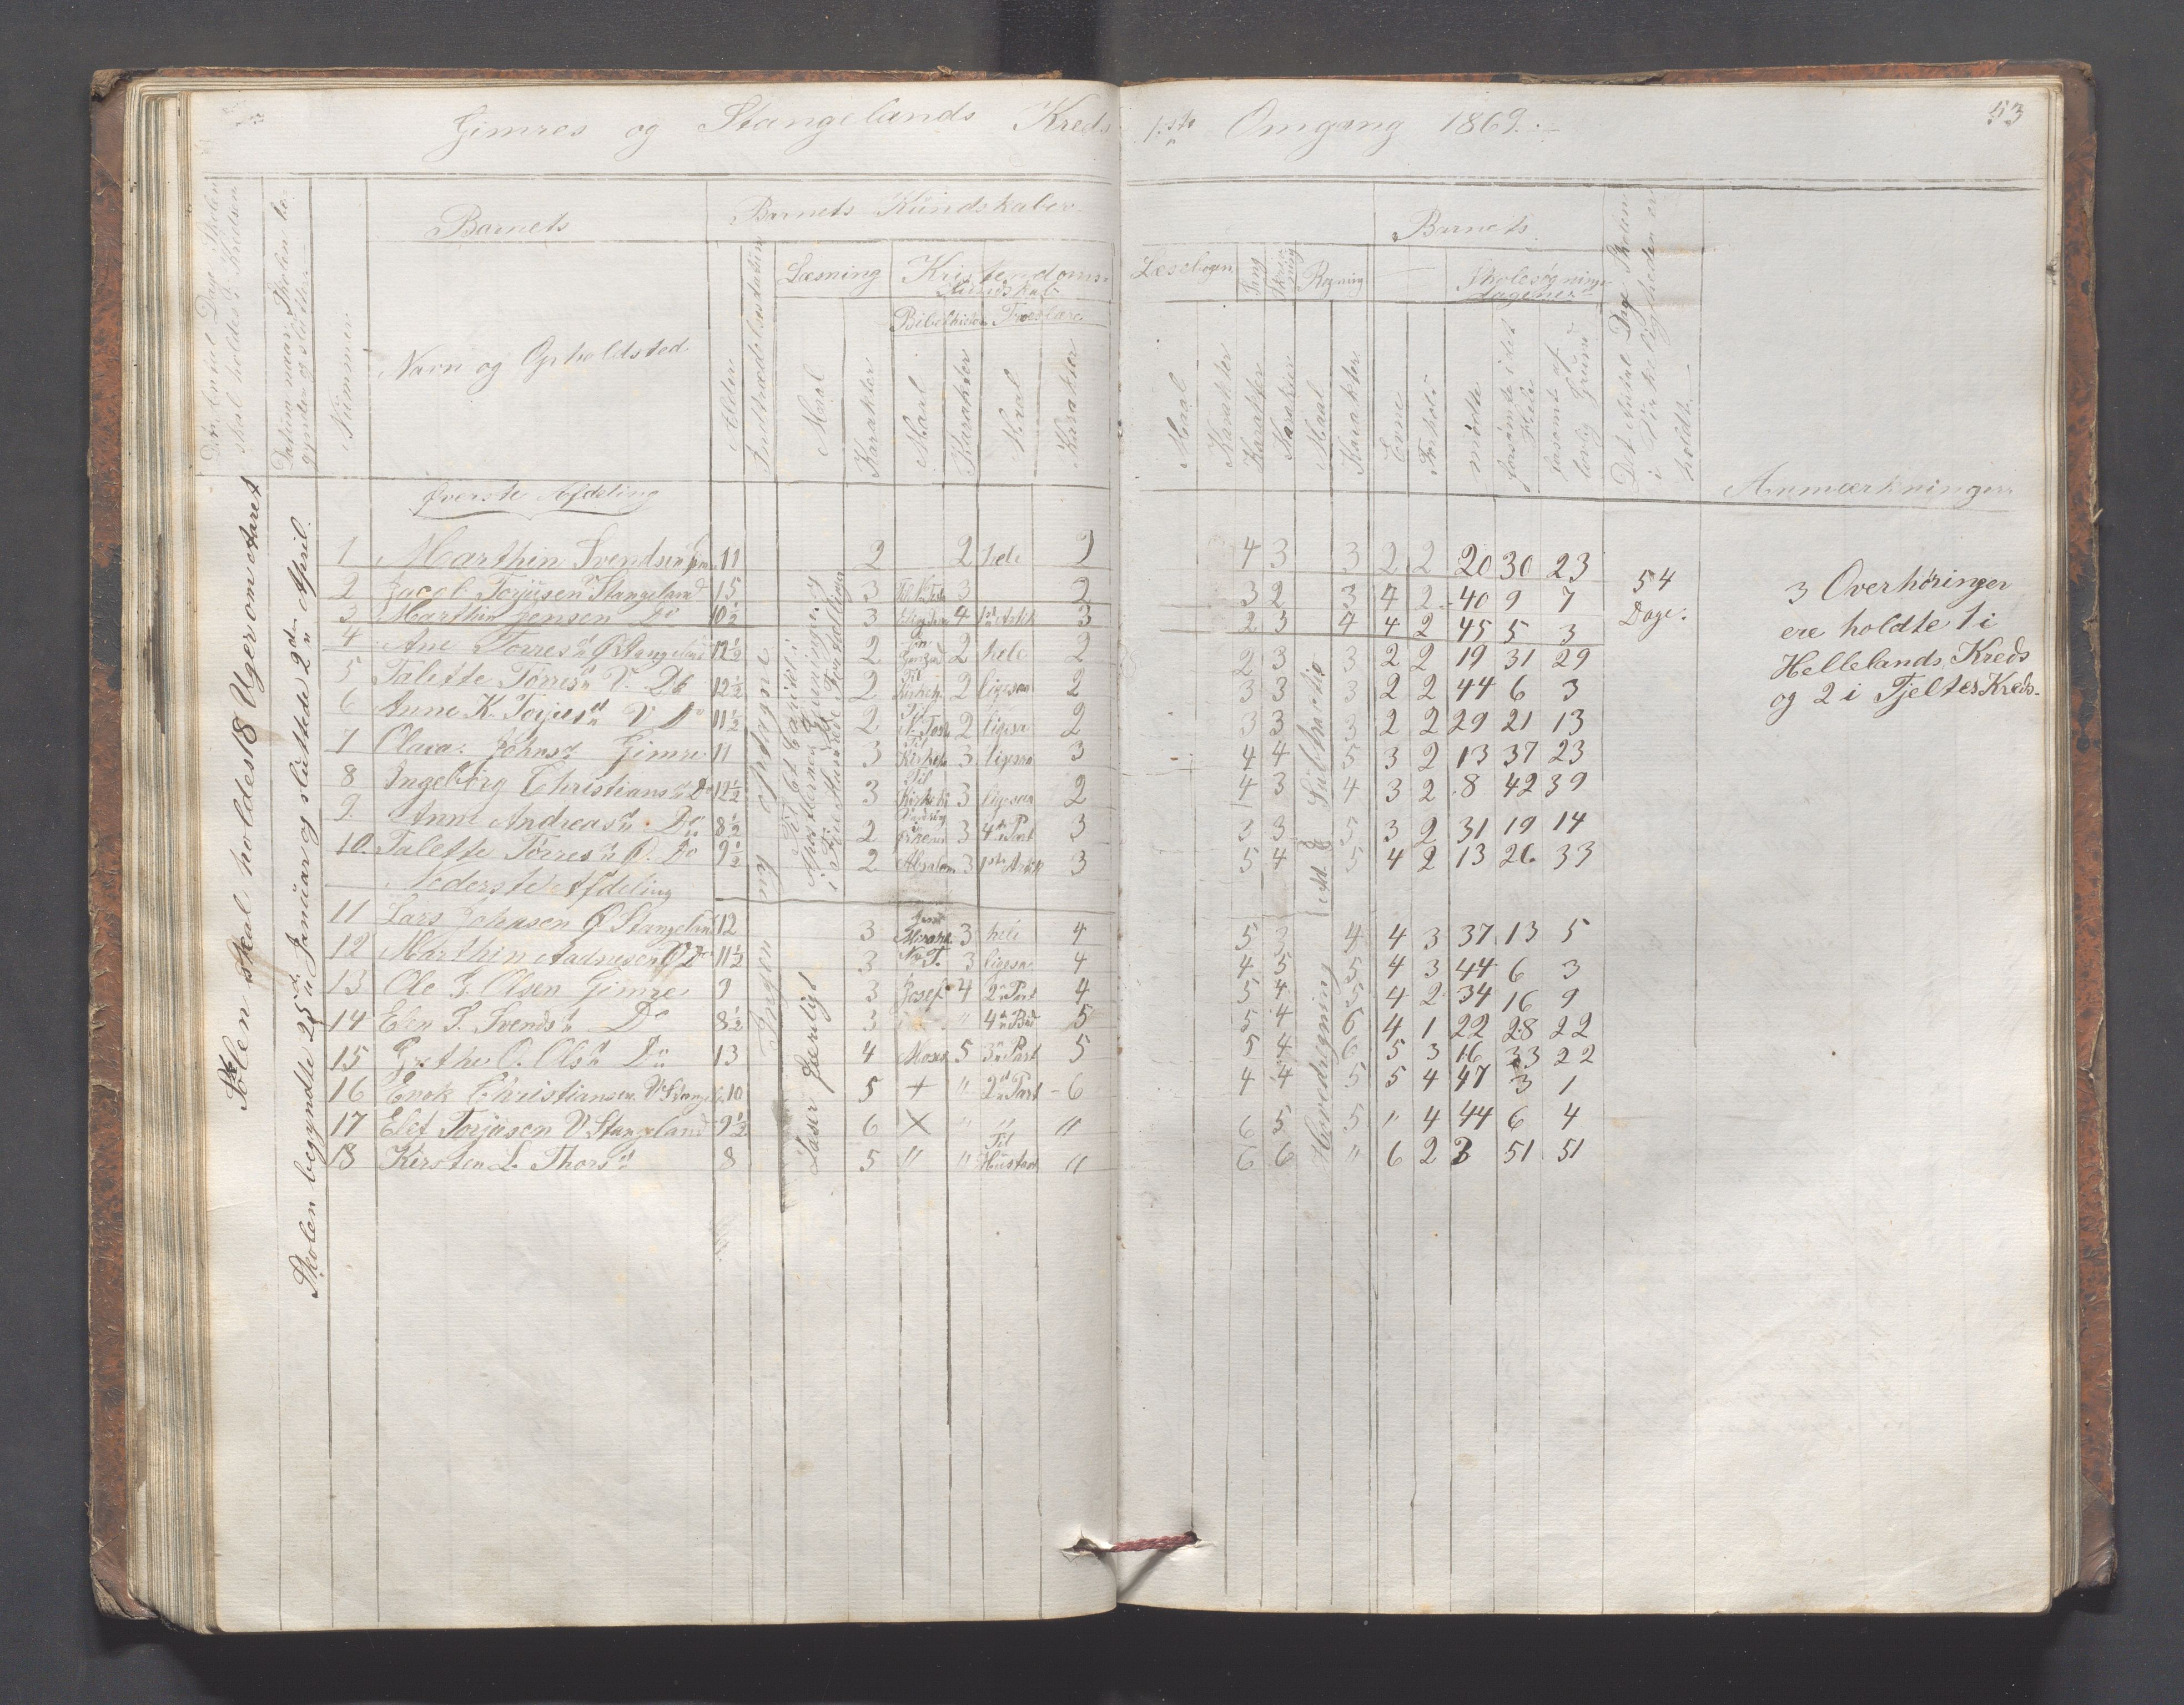 Gimres og Stangelands Kreds 1ste Omgang 1869.
53
Det Antal Dage Skolen skal holdes i Kredsen
Datum naar Skolen begyndte og sluttede
Nummer
Barnets
Navn og Opholdsted.
Alder
Indtrædelsesdatum
Barnets Kundskaber.
Læsning
Maal
Karakter
Kristendoms Kundskab
Bibelhistorie
Maal
Karakter
Troeslære
Maal
Karakter
Læsebogen
Maal
Karakter
Sang
Karakter
Skrivning
Karakter
Regning
Maal
Karakter
Barnets
Evne
Forhold
Skolesøgningsdagene
mødte
forsømte i det Hele
forsømte af lovlig Grund
Det Antal Dage Skolen i Virkeligheden er holdt
Anmærkninger
Skolen skal holdes 18 Uger om Aaret
Skolen begyndte 25de Januar og sluttede 2den April.
Ingen ny optagne
Øverste Afdeling
1 Marthin Svendsen 11 2 2 hele 2 4 3 3 2 2 20 30 23
2 Jacob Torjusen Stangeland 15 3 3 2 3 2 3 4 2 40 9 7
3 Marthin Jensen Do 10½ 3 4 3 2 3 4 4 2 45 5 3
4 Ane Torresd Ø Stangeland 12½ 2 2 hele 2 2 3 3 2 2 19 31 29
5 Talette Tørresd V. Do 12½ 2 2 ligesaa 2 3 3 3 2 2 44 6 3
6 Anne K. Torjusd V Do 11½ 2 2 ligesa 2 3 3 3 2 2 29 21 13
7 Olava Johnsd Gimre 11 3 3 ligesaa 3 4 4 5 3 2 13 37 23
8 Ingeborg Christiansd Do 12½ 3 3 ligesaa 2 4 3 4 3 2 8 42 39
9 Anne Andreasd Do 8½ 2 3 4de Part 3 3 3 5 3 2 31 19 14
10 Talette Torresd Ø. Do 9½ 2 Absalom 3 1ste Artik 3 5 4 5 4 2 13 26 33
Nederste Afdeling
11 Lars Johnsen Ø Stangeland 12 3 3 hele 4 5 3 4 4 3 37 13 5
12 Marthin Aadnesen Ø Do 11½ 3 N. T. 3 ligesa 4 4 5 5 4 3 44 6 3
13 Ole G Olsen Gimre 9 3 Josef 4 2den Part 4 5 4 5 4 2 34 16 9
14 Elen S. Svendsd Do 8½ 3 " 4de Bud 5 5 4 6 4 1 22 28 22
15 Grethe O. Olsd Do 13 4 Moses 5 3die Part 5 5 4 6 5 3 16 33 22
16 Enok Christiansen V Stangel 10 5 + " 2den Part 6 4 4 5 5 4 47 3 1
17 Elef Torjusen V Stangeland 9½ 6 X " " " 6 5 5 " 4 44 6 4
18 Kirsten L. Thorsd 8 5 " " Til Hustavl " 6 6 " 6 2 3 51 51
Læser færdigt
Subtraktio
Hovedregning
54 Dage.
3 Overhøringer
ere holdte 1 i
Hellelands Kreds
og 2 i Tjeltes Kreds.